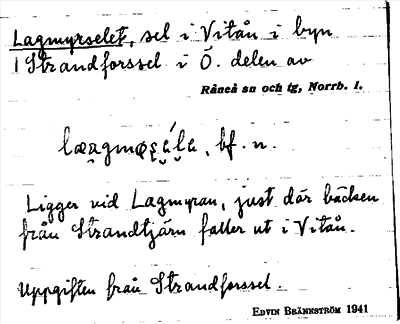 Lagmyrselet, sel i Vitån i byn
Strandforssel i Ö. delen av
Råneå sn och tg, Norrb. l.
bf. n.
Ligger vid Lagmyran, just där bäcken
från Strandtjärn faller ut i Vitån.
Uppgiften från Strandforssel.
EDVIN BRÄNNSTRÖM 1941